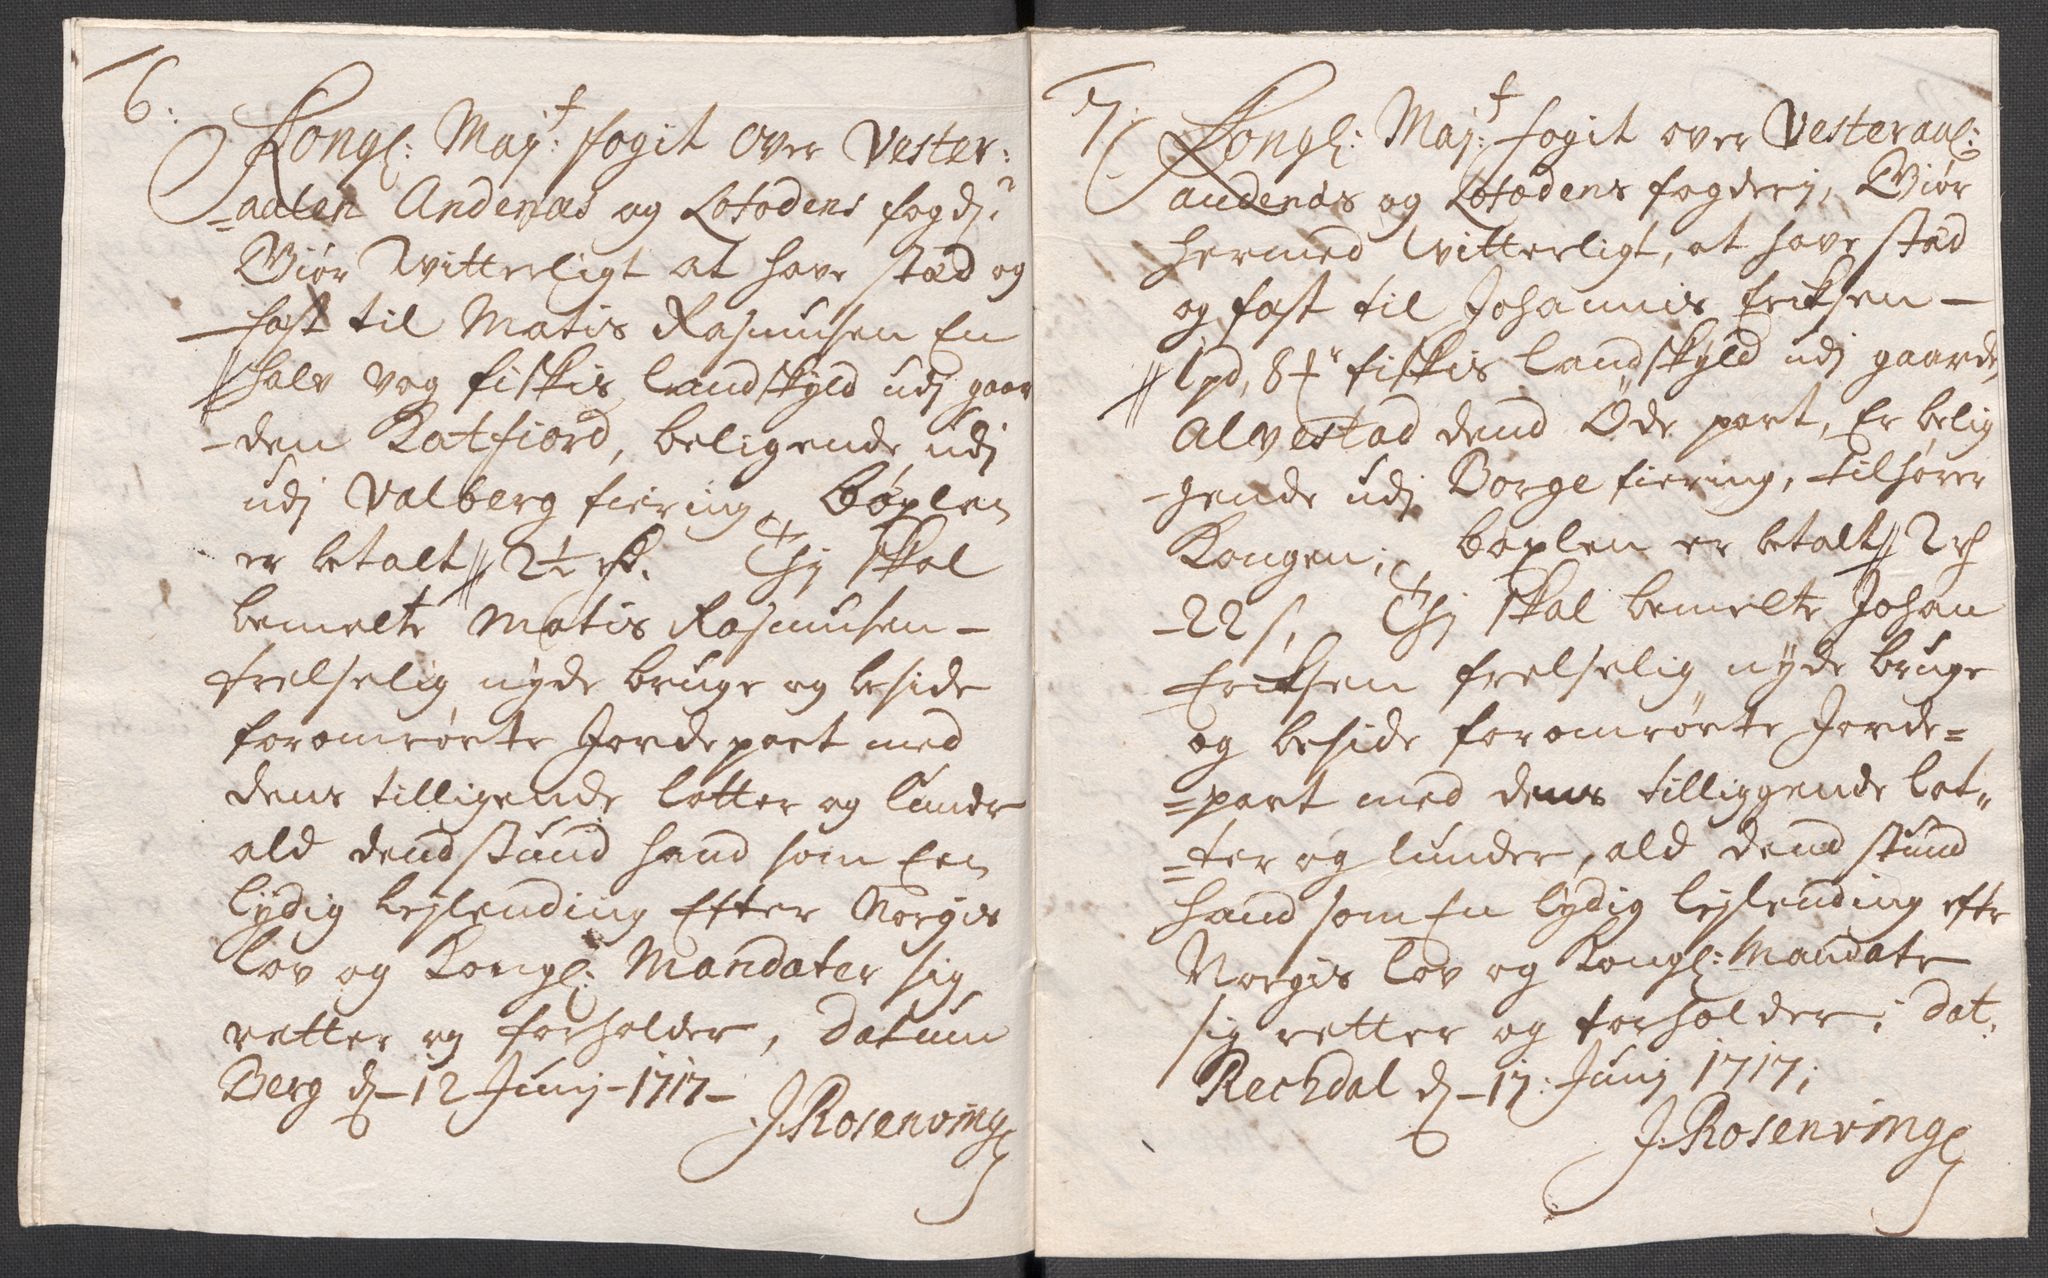 6:
Kongl: Maj:t fogit over Vester:
=aalen Andenæs og Lofodens fogd:
Giør Witterligt at have stæd og
fæst til Matis Rasmusen En
halv vog fiskis landskyld udj gaar
-den Katfiord, beligende udj
udj Valberg fiering, bøxlen
er betalt 2½ rd. Thj skal
bemelte Matis Rasmusen -
frelselig nyde bruge og beside
foromrørte Jordepart med
dens tilligende lotter og lunder
ald dend stund hand som Een
lydig lejlending Efter Norgis
lov og Kongl: Mandater sig
retter og forholder, datum
Berg d - 12 Junj - 1717 -
J. Rosenving
7:
Kongl: Maj:t fogit over Vesteraal:
andenæs og Lofodens fogderj, Giør
hermed Vitterligt, at have stæd
og fæst til Johannis Eriksen -
1 pd, 8 # fiskis landskyld udj gaarde,
Alvestad dend Øde part, Er belig
-gende udj Borge fiering, tilhører
Kongen; bøxlen er betalt 2 rd
-22 s, Thj skal bemelte Johan
Eriksen frelselig nyde bruge
og beside foromrørte Jorde=
=part med dens tilliggende lot„
=ter og lunder, ald dend stund
hand som En lydig lejlending efte
Norgis lov og Kongl: Mandate
sig retter og forholder; Dat.
Rechdal d - 17: Junj 1717;
J. Rosenving